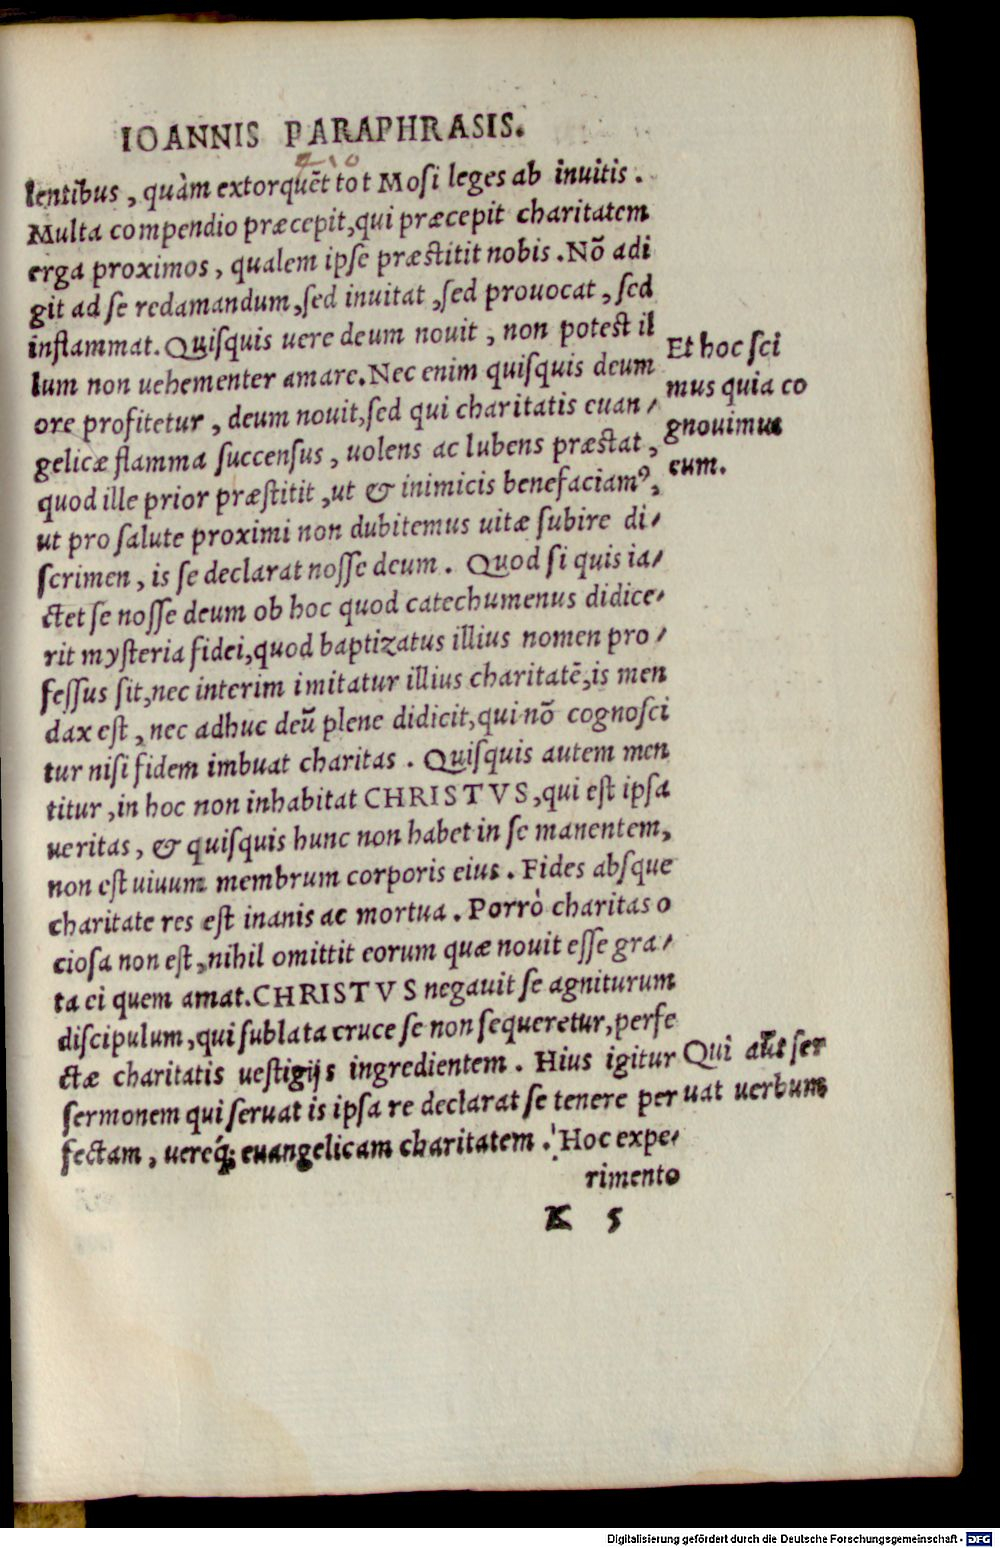 IOANNIS PARAPHRASIS.
lentibus, quàm extorquẽt tot Mosi leges ab inuitis.
Multa compendio præcepit, qui præcepit charitatem
erga proximos, qualem ipse præstitit nobis. Nõ adi
git ad se redamandum, sed inuitat, sed prouocat, sed
inflammat. Quisquis uere deum nouit, non potest il
lum non uehementer amare. Nec enim quisquis deum
ore profitetur, deum nouit, sed qui charitatis euan/
gelicæ flamma succensus, uolens ac lubens præstat,
quod ille prior præstitit, ut & inimicis benefaciamꝰ,
ut pro salute proximi non dubitemus uitæ subire di/
scrimen, is se declarat nosse deum. Quod si quis ia/
ctet se nosse deum ob hoc quod catechumenus didice/
rit mysteria fidei, quod baptizatus illius nomen pro/
fessus sit, nec interim imitatur illius charitatẽ, is men
dax est, nec adhuc deũ plene didicit, qui nõ cognosci
tur nisi fidem imbuat charitas. Quisquis autem men
titur, in hoc non inhabitat CHRISTVS, qui est ipsa
ueritas, & quisquis hunc non habet in se manentem,
non est uiuum membrum corporis eius. Fides absque
charitate res est inanis ac mortua. Porrò charitas o
ciosa non est, nihil omittit eorum quæ nouit esse gra/
ta ei quem amat. CHRISTVS negauit se agniturum
discipulum, qui sublata cruce se non sequeretur, perfe
ctæ charitatis uestigijs ingredientem. Hius igitur
sermonem qui seruat is ipsa re declarat se tenere per
fectam, uereq́; euangelicam charitatem. Hoc expe/
rimento
K 5
Et hoc sci
mus quia co
gnouimus
eum.
Qui aũt ser
uat uerbum
Digitalisierung gefördert durch die Deutsche Forschungsgemeinschaft - DFG